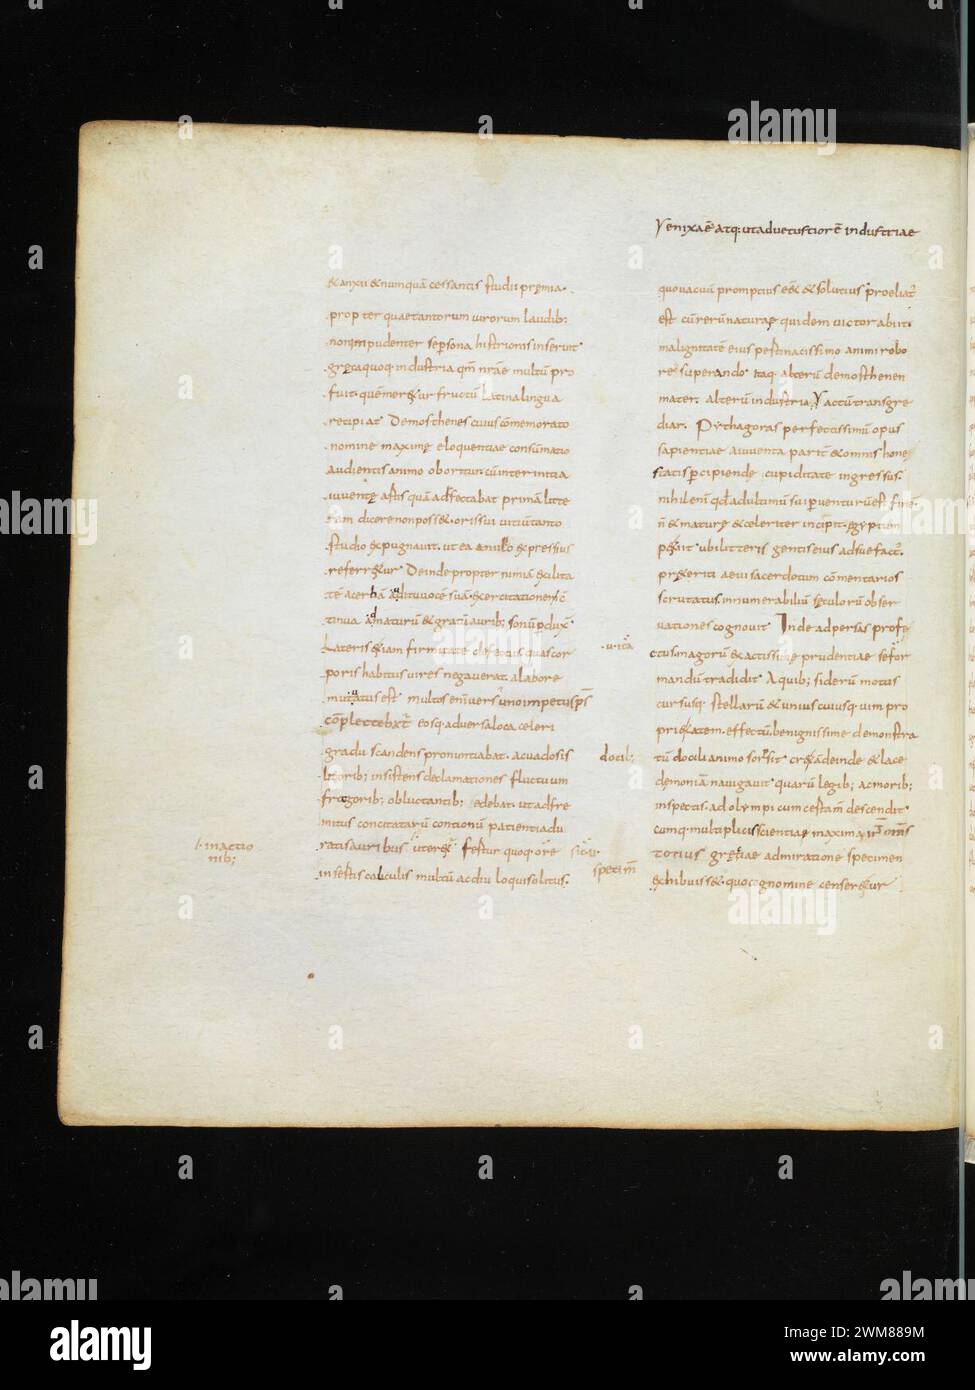 Yenixaē atq; utaduetustiorē industriae
&anxii &numquā cessantis studii pręmia.
propter quae tantorum uirorum laudib;
non impudenter se persona histrionis inserunt
gręca quoq; industria qm̄ nrāe multū pro
fuit. quē merę&ur fructū Latina lingua
recipiat Demosthenes cuius cōmemorato
nomine maximę eloquentiae consūmatio
audientis animo oboritur. cū inter initia
iuuentę
studio expugnauit. ut ea a nullo expressius
referr&ur Deinde propter nimiā exilita
tē acerbā auditu uocē suā exercitatione cō
tinua
Lateris &iam firmitate defectus quas cor
poris habitus uires negauerat. a labore
mutuatus est multos enī uersus uno impetu sps
cōplecteb&r eosq; aduersa loca celeri
gradu scandens pronuntiabat. ac uadosis
litorib; insistens declamationes fluctuum
fragorib; obluctantib; edebat. ut ad fre
mitus concitatarū contionū patientia du
ratis auribus uter&ur fertur quoq; ore
insertis calculis multū ac diu loqui solitus.
quo uacuū promptius eē& & solutius proeliat
est cū rerū natura& quidem uictor abiit
malignitatē eius pertinacissimo animi robo
re superando itaq; alterū demosthenen
mater. alterū industria
Pythagoras perfectissimū opus
sapientiae a iuuenta parit& omnis hones
tatis percipiendę cupiditate ingressus.
nihil enī qd ad ultimū sui peruenturū est finē
n̄ & maturę & celeriter incipit. ęgyptum
p&iit ubi litteris gentis eius adsuefact;
pręteriti aeui sacerdotum cōmentarios
scrutatus. innumerabiliū sęculorū obser
uationes cognouit Inde ad persas profe
ctus. magorū exactissimę prudentiae se for
mandū tradidit A quib; siderū motus
cursusq; stellarū & unius cuiusq; uim pro
pri&atem. effectū. benignissime demonstra
tū docili animo sorpsit cr&ā deinde & lace
demoniā nauigauit quarū legib; ac morib;
inspectis. ad olympicum certam̄ descendit
cumq; multiplicis scientiae maximā
totius gręciae admiratione specimen
exhibuiss& quo cognomine censer&ur
uitā
docil;
l. in actio
nib;
specim̄